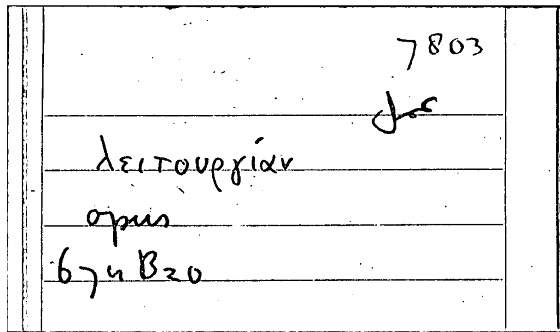 7803
λειτουργίαν
opus
67n B20